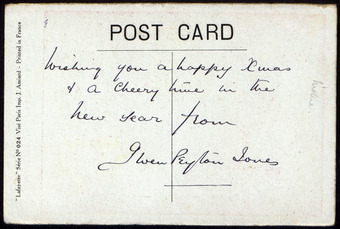 POST CARD
Wishing you a happy Xmas
& a cheery time in the
New Year from
Gwen Peyton Jones
"Lafayette" Série Nº 024 Visé Paris Imp. J. Amiard - Printed in France